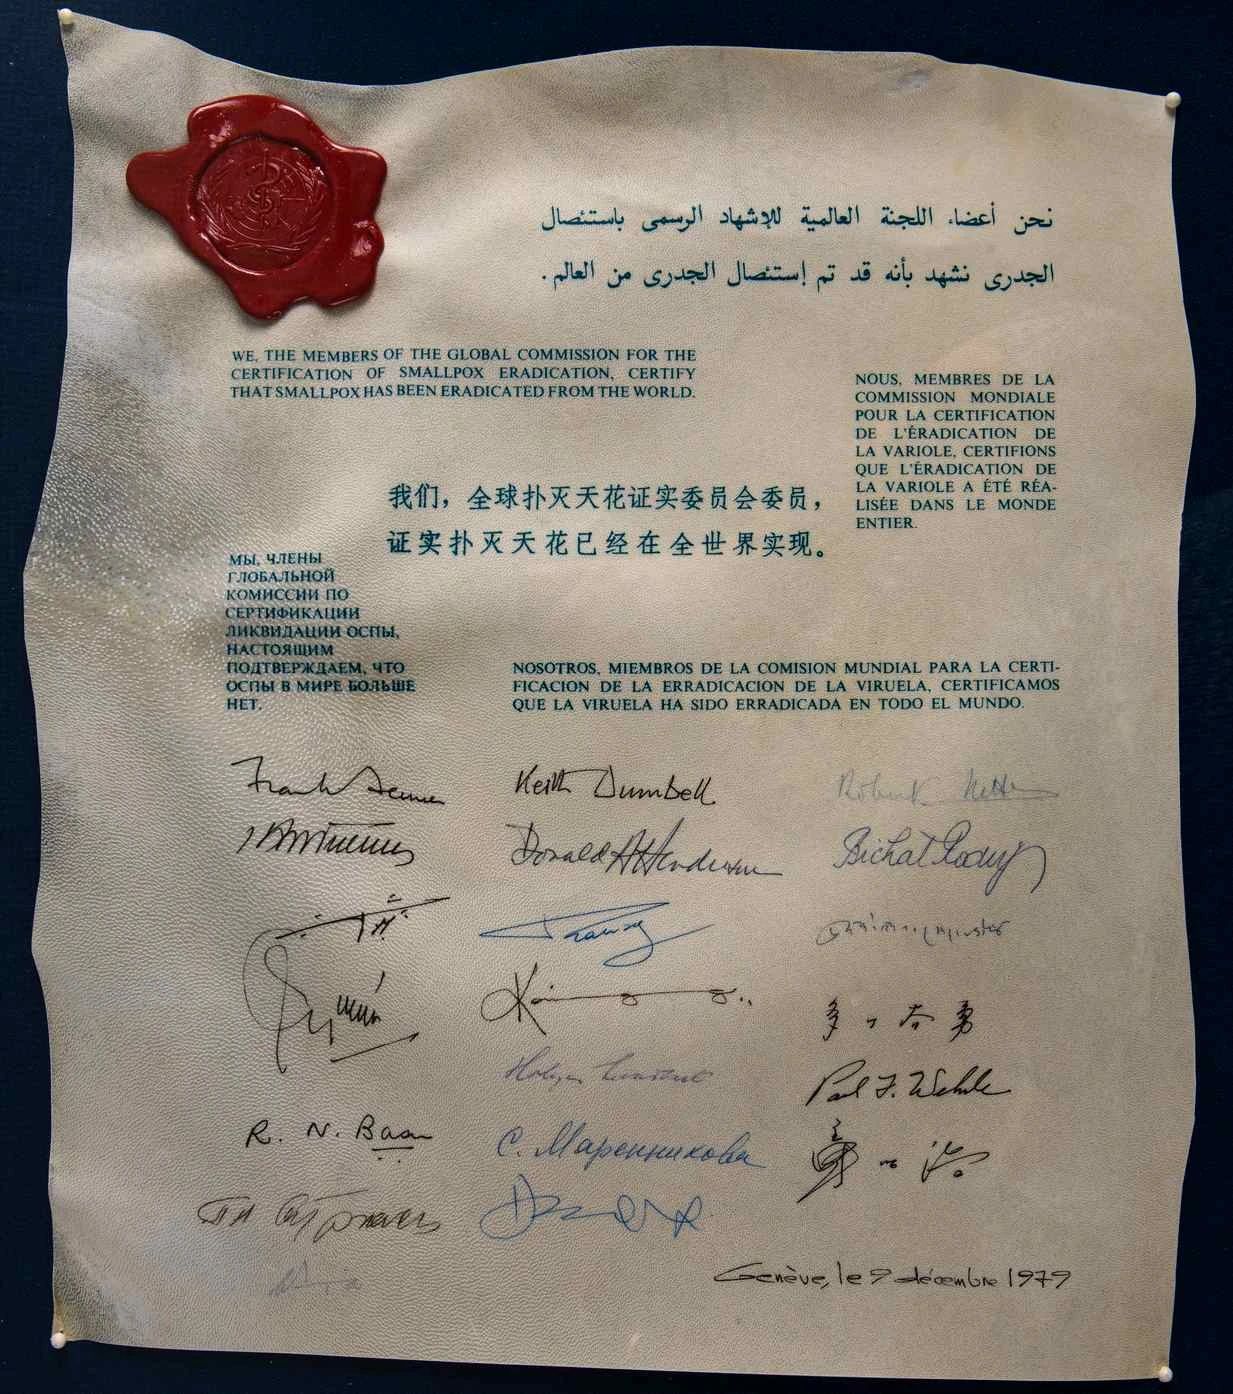 نحن أعضاء اللجنة العالمية للإشهاد الرسمى باستئصال
الجدرى نشهد بأنه قد تم إستئصال الجدرى من العالم .
WE, THE MEMBERS OF THE GLOBAL COMMISSION FOR THE
CERTIFICATION OF SMALLPOX ERADICATION, CERTIFY
THAT SMALLPOX HAS BEEN ERADICATED FROM THE WORLD.
NOUS, MEMBRES DE LA
COMMISSION MONDIALE
POUR LA CERTIFICATION
DE L'ÉRADICATION DE
LA VARIOLE, CERTIFIONS
QUE L'ÉRADICATION DE
LA VARIOLE A ÉTÉ RÉA-
LISÉE DANS LE MONDE
ENTIER.
我们，全球扑灭天花证实委员会委员，
证实扑灭天花已经在全世界实现。
МЫ, ЧЛЕНЫ
ГЛОБАЛЬНОЙ
КОМИССИИ ПО
СЕРТИФИКАЦИИ
ЛИКВИДАЦИИ ОСПЫ,
НАСТОЯЩИМ
ПОДТВЕРЖДАЕМ, ЧТО
ОСПЫ В МИРЕ БОЛЬШЕ
НЕТ.
NOSOTROS, MIEMBROS DE LA COMISION MUNDIAL PARA LA CERTI-
FICACION DE LA ERRADICACION DE LA VIRUELA, CERTIFICAMOS
QUE LA VIRUELA HA SIDO ERRADICADA EN TODO EL MUNDO.
Frank Fenner
Keith Dumbell
Robert
Donald A Henderson
Bichat
R. N. Basu
Paul F. Wehrle
С. Маренникова
Genève, le 9 décembre 1979